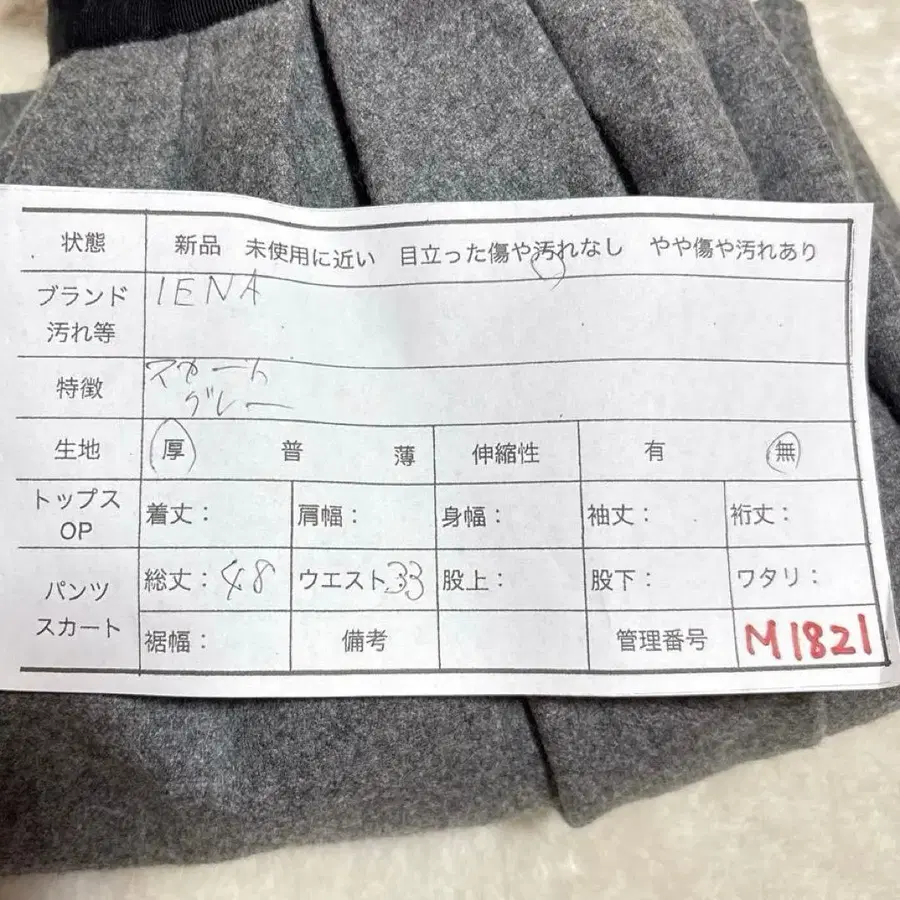 状態 新品 未使用に近い 目立った傷や汚れなし やや傷や汚れあり
ブランド
汚れ等
IENA
特徴
スカート
グレー
生地 厚 普 薄 伸縮性 有 無
トップス
OP
着丈： 肩幅： 身幅： 袖丈： 裄丈：
パンツ
スカート
総丈：48 ウエスト33 股上： 股下： ワタリ：
裾幅： 備考 管理番号 M1821